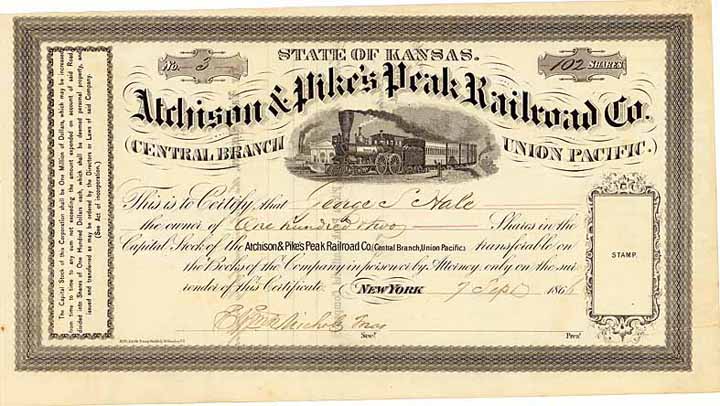 STATE OF KANSAS.
No. 3
102 SHARES
Atchison & Pike's Peak Railroad Co.
(CENTRAL BRANCH
UNION PACIFIC.)
This is to Certify that George S Hale
the owner of One hundred & two Shares in the
Capital Stock of the Atchison & Pike's Peak Railroad Co. (Central Branch, Union Pacific.) transferable on
the Books of the Company in person or by Attorney only on the sur-
render of this Certificate
NEW YORK 7 Sept 1866
Treas
Sec'y
Pres't
STAMP.
The Capital Stock of this Corporation shall be One Million of Dollars, which may be increased
from time to time to any sum not exceeding the amount expended on account of said Road,
divided into Shares of One Hundred Dollars each, which shall be deemed personal property, and
issued and transferred as may be ordered by the Directors or Laws of said Company.
(See Act of Incorporation.)